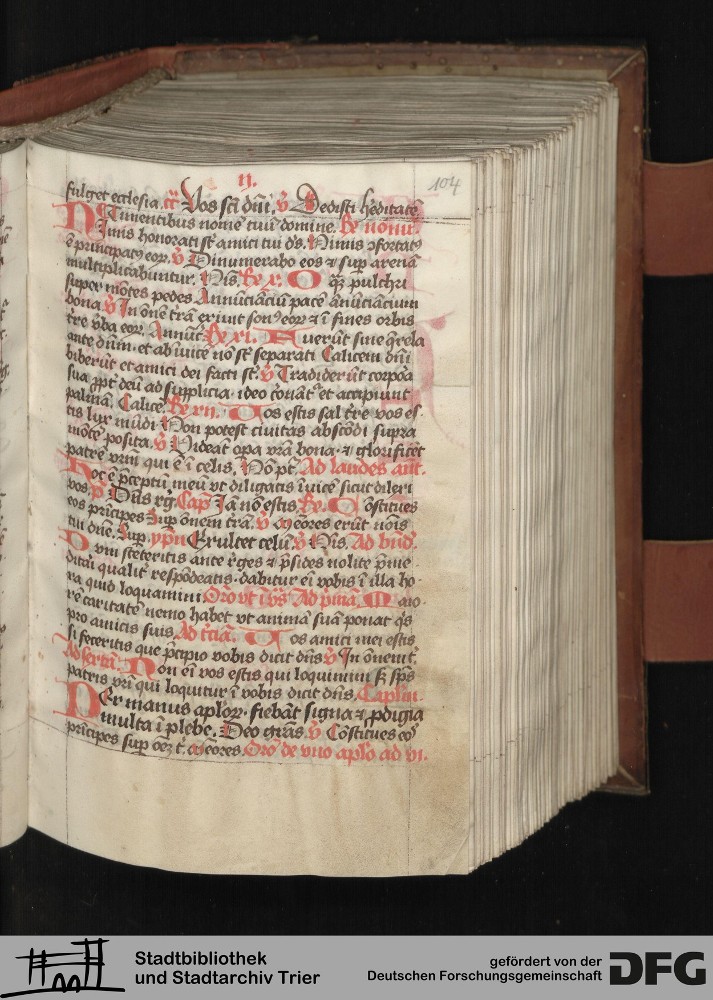 ij.
104
fulget ecclesia. Vos sc̄i dn̄i. v̄ Dedisti heditatē
Timentibus nomē tuū domine. Re nonū.
Nimis honorati st̄ amici tui d̓s. Nimis ꝯfortatꝰ
ē principatꝰ eoꝝ. v̄ Dinumerabo eos ⁊ sup̄ arenā
multiplicabuntur. Nis. Re x. O qz pulchri
super mōtes pedes Annūciāciū pacē anūciāciūm
bona. v̄ In onē trā exiuit sonꝰ eoꝝ ⁊ ī fines orbis
tr̄e v̄ba eoꝝ. Annūt. Re xi. Fuerūt sine q̄rela
ante dn̄m · et ab īuicē nō st̄ separati Calicem dn̄i
biberūt et amici dei facti st̄. v̄ Tradiderūt corpora
sua ꝓpt̄ deū ad supplicia · ideo
palmā. Calicē. Re xij. Vos estis sal tr̄e vos es-
tis lux mūdi. Non potest civitas abscōdi supra
mōtē posita. v̄ Videāt opa vr̄a bona · ⁊ glorificēt
patrē vr̄m qui ē ī celis. Nō pt̄. Ad laudes ant.
Hoc ē p̄ceptū meū vt diligatis īuicē sicut dilexi
vos. p̄ Dn̄s rḡ. Cap̄ Iā nō estis. Re. Cōstitues
eos prīcipes Sup onem trā. v̄ Mēores erūt nōis
tui dn̄e. Sup. ypn̄ Exultet celū v̄ Nis. Ad bn̄d̓.
Dum steteritis ante r̄ges ⁊ p̄sides nolite p̄me-
ditari qualit̓ respōdeatis · dabitur eī vobis ī illa ho-
ra quid loquamini Oro vt ī Ad p̄mā. Maio-
rē caritatē nemo habet vt animā suā ponat q̓s
pro amicis suis. Ad tciā. Vos amici mei estis
si feceritis que p̄cipio vobis dicit dn̄s v̄ In ōnem t̄.
Ad sextā. Non eī vos estis qui loquimini sꝫ sp̄s
patris vr̄i qui loquitur ī vobis dicit dn̄s. Caplm.
Per manus aploꝝ · fiebāt signa ⁊ ꝓdigia
multa ī plebe. Deo grās. v̄ Cōstitues eos
prīcipes sup̄ oēꝫ t̄. Mēores. Orō de vno aplo ad vi.
Stadtbibliothek
und Stadtarchiv Trier
gefördert von der
Deutschen Forschungsgemeinschaft
DFG